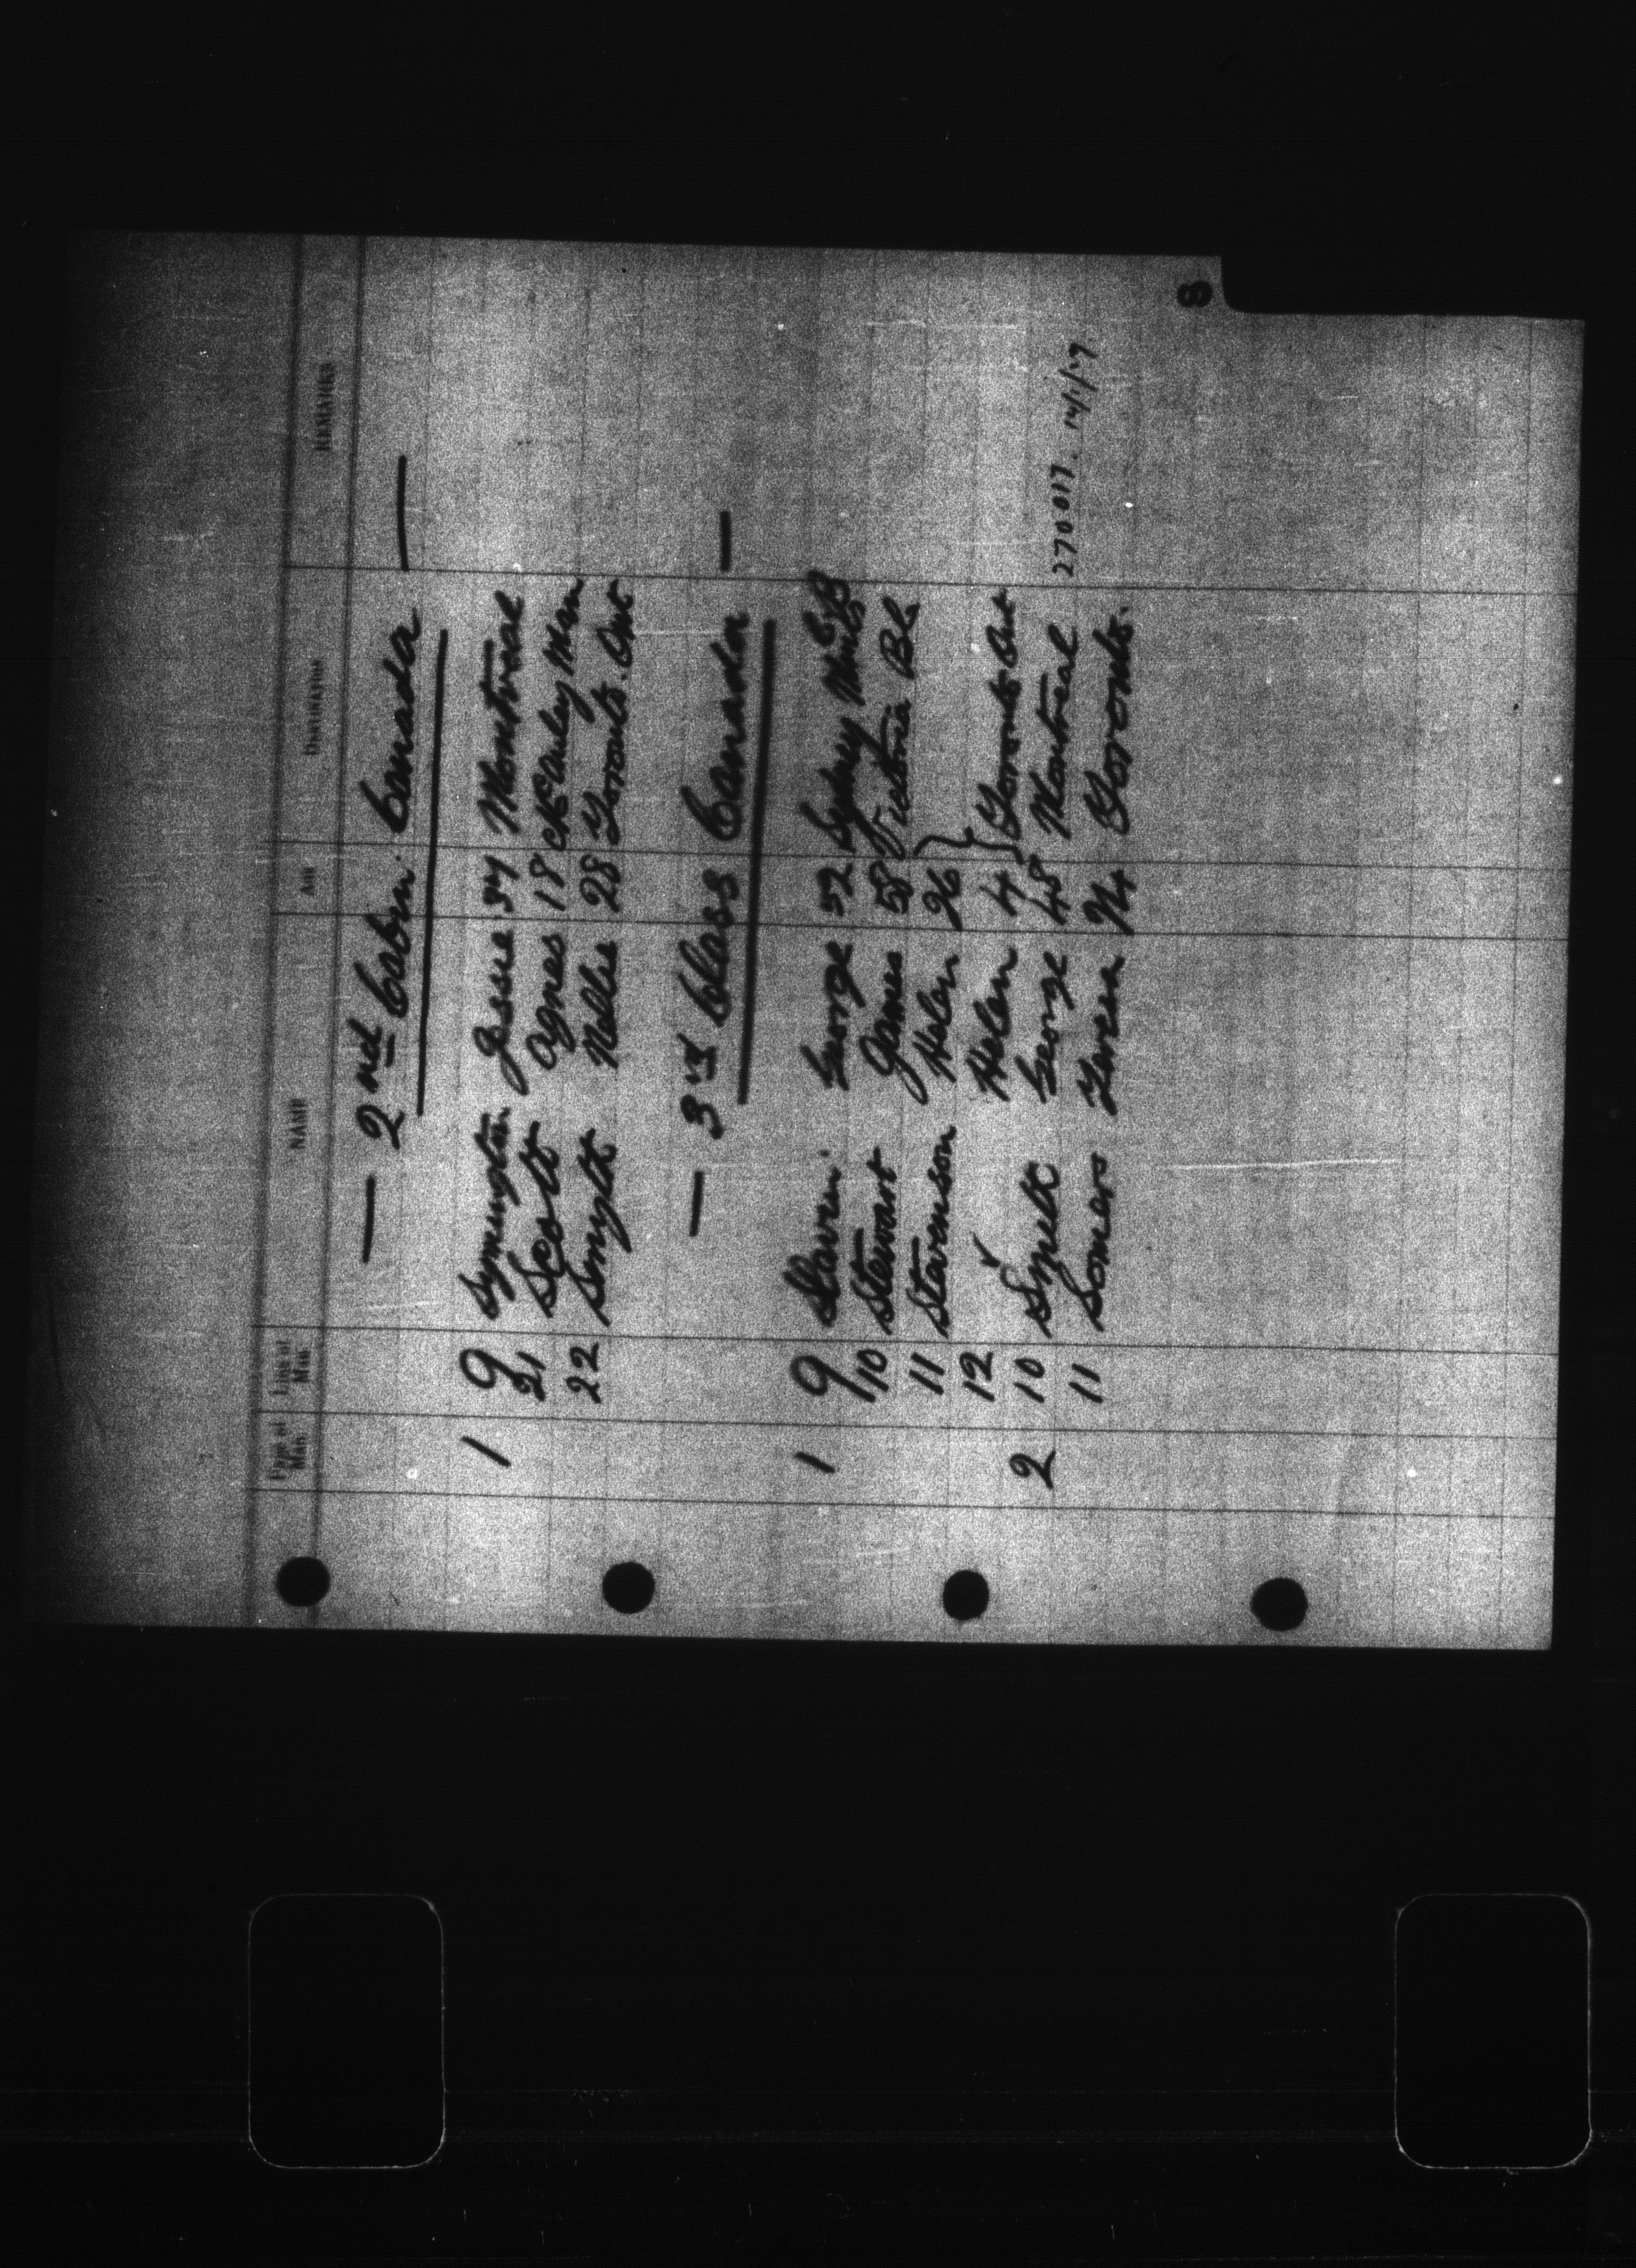 Page of Man. Line of Man. NAME AGE DESTINATION REMARKS
— 2nd Cabin. Canada —
1 9 Symington Jessie 34 Montreal
21 Scott Agnes 18 McAuley Man
22 Smyth Nellie 28 Toronto. Ont
— 3rd Class Canada —
1 9 Slaven. George 52 Sydney Mines CB
10 Stewart James 58 Victoria BC
11 Stevenson Helen 26
12 Helen 4 Toronto Ont
2 10 George 48 Montreal 270017. 14/1/27.
11 Somers Toronto.
S